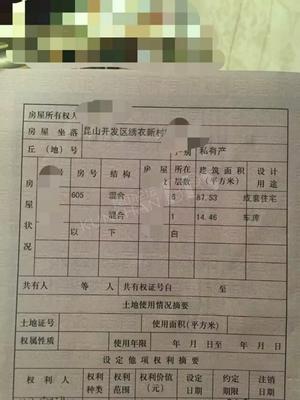 房屋所有权人
房屋坐落 昆山开发区绣衣新村
丘（地）号 产别 私有产
房屋状况 房号 结构 层数 建筑面积（平方米） 设计用途
605 混合 6 87.53 成套住宅
混合 1 14.46 车库
以 下 白
共有人 等 人 共有权证号自 至
土地使用情况摘要
土地证号 使用面积（平方米）
权属性质 使用年限 年 月 日至 年 月 日
设定他项权利摘要
权利人 权利种类 权利范围 权利价值（元） 设定日期 约定期限 注销日期